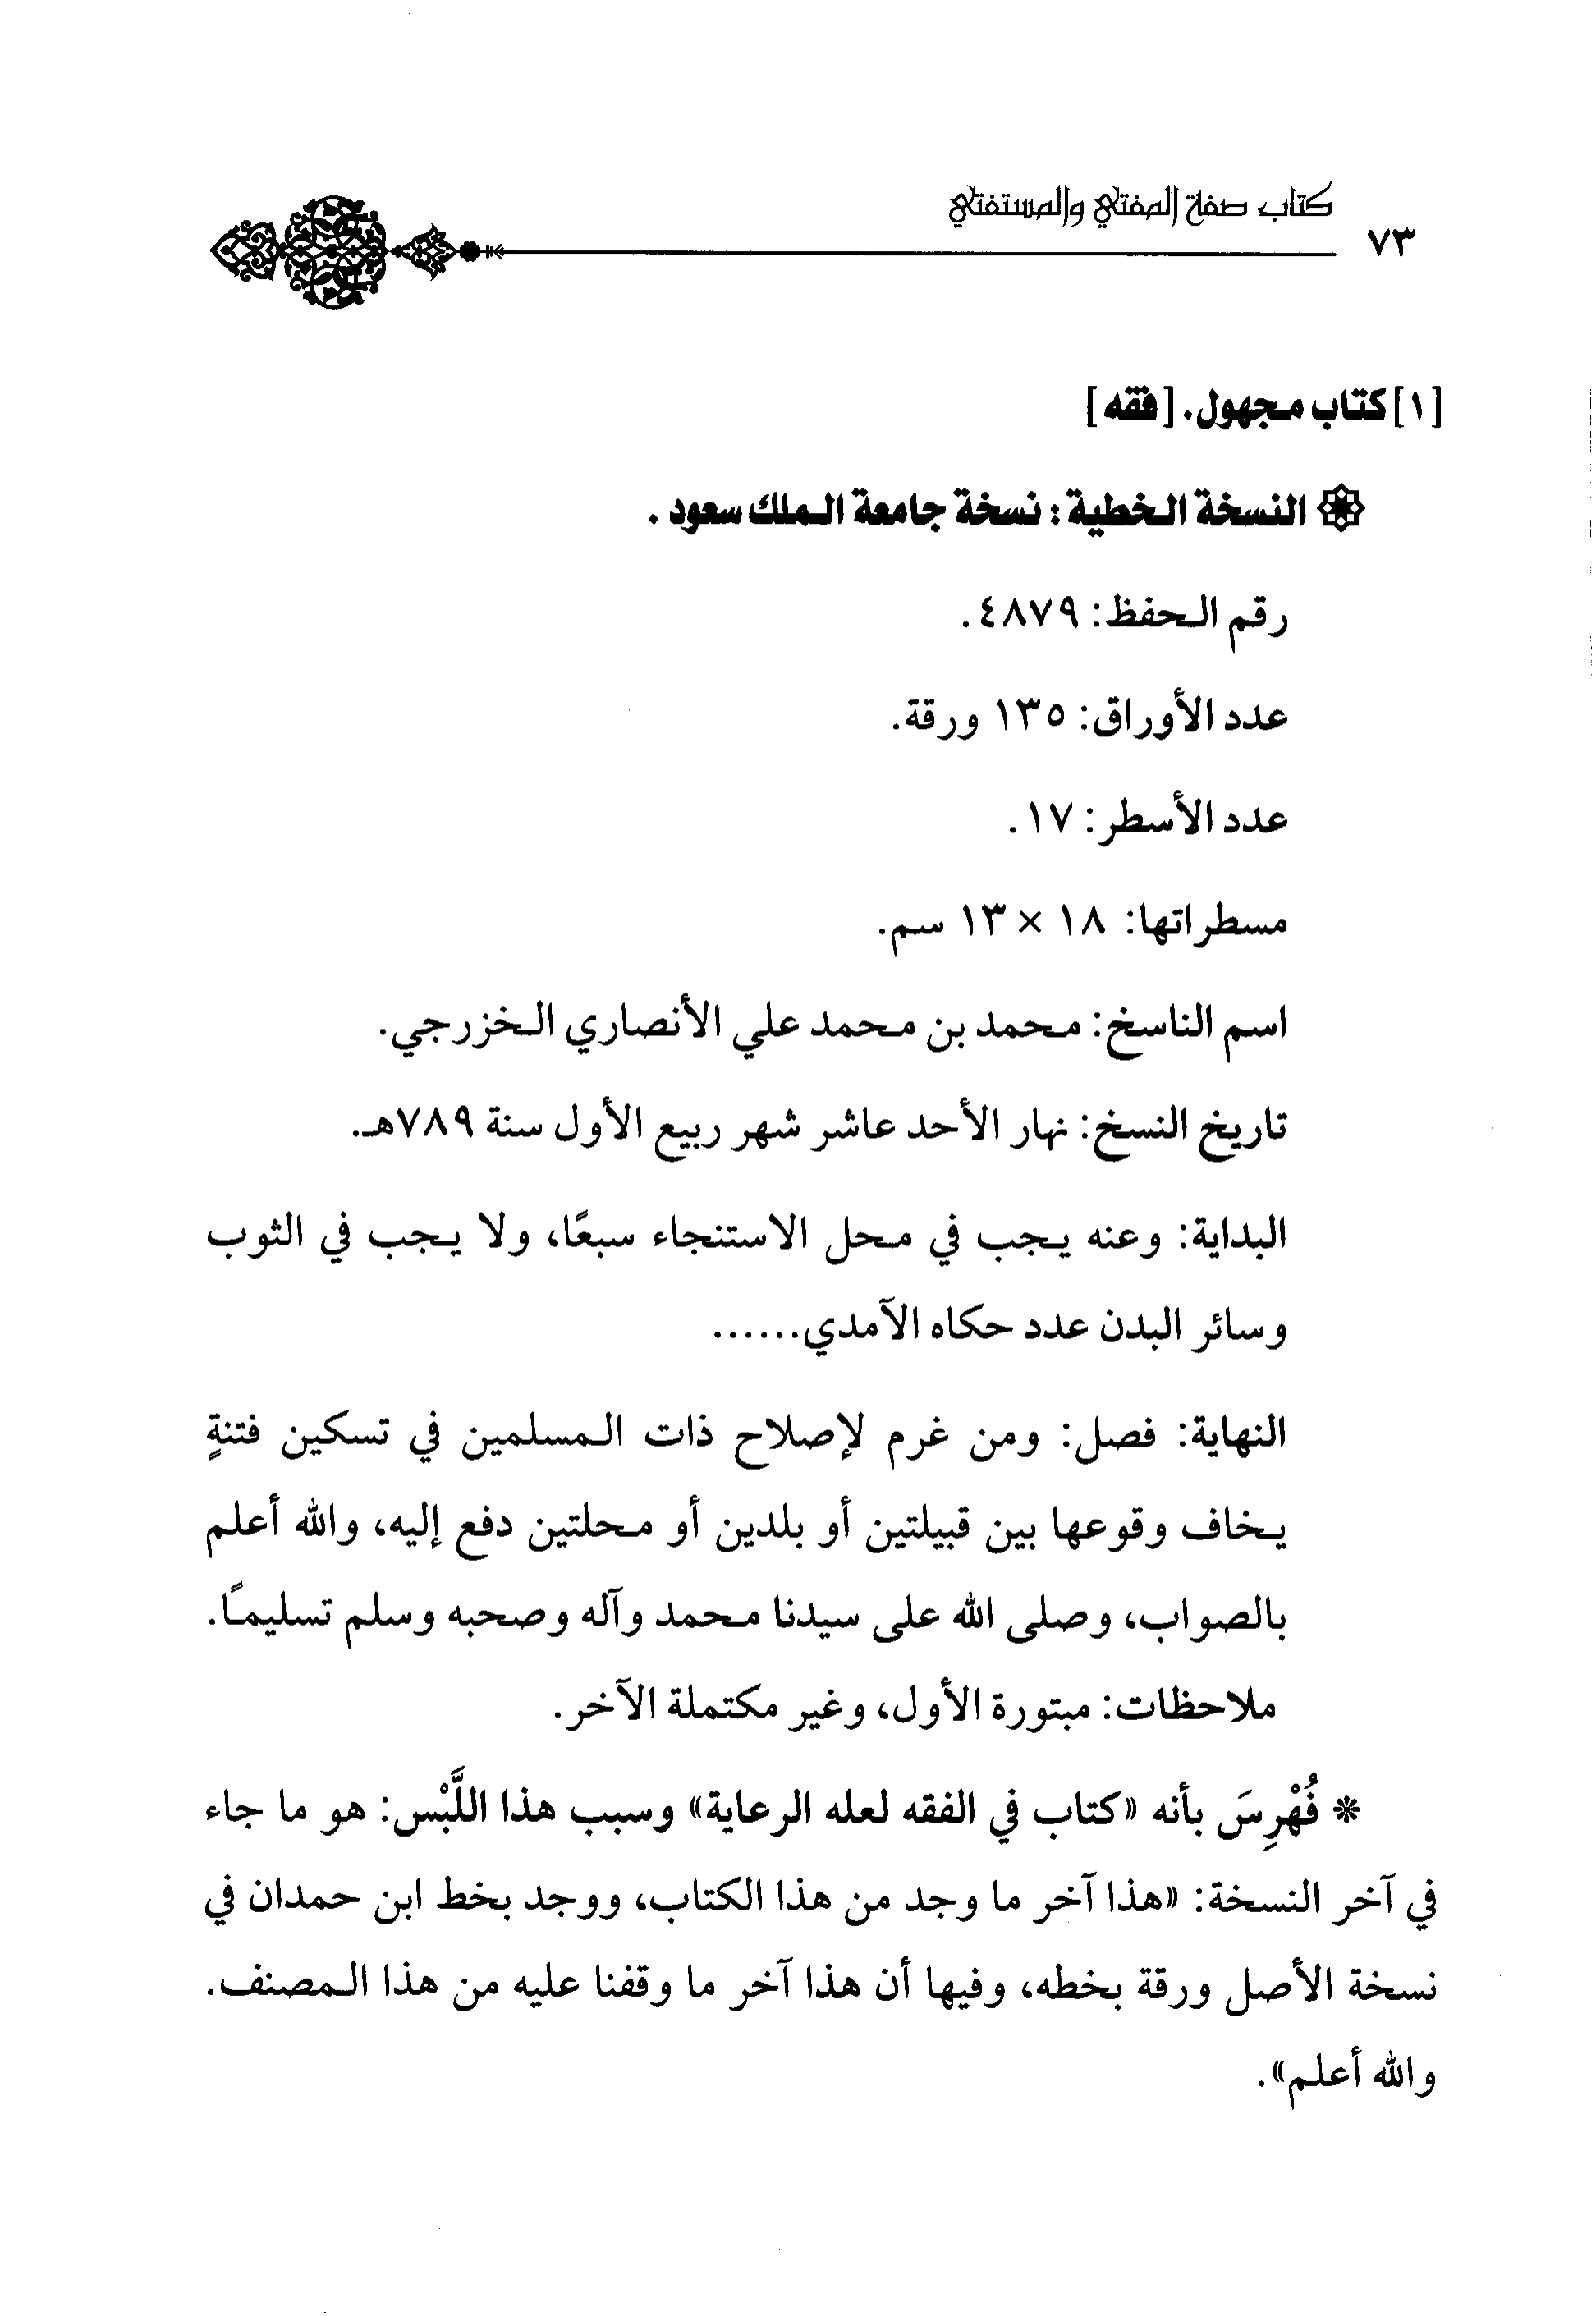 كتاب صفة المفتي والمستفتي
٧٣
[١] كتاب مجهول. [فقه]
النسخة الخطية: نسخة جامعة الملك سعود.
رقم الحفظ: ٤٨٧٩.
عدد الأوراق: ١٣٥ ورقة.
عدد الأسطر: ١٧.
مسطراتها: ١٨ × ١٣ سم.
اسم الناسخ: محمد بن محمد علي الأنصاري الخزرجي.
تاريخ النسخ: نهار الأحد عاشر شهر ربيع الأول سنة ٧٨٩هـ.
البداية: وعنه يجب في محل الاستنجاء سبعًا، ولا يجب في الثوب
وسائر البدن عدد حكاه الآمدي......
النهاية: فصل: ومن غرم لإصلاح ذات المسلمين في تسكين فتنةٍ
يخاف وقوعها بين قبيلتين أو بلدين أو محلتين دفع إليه، والله أعلم
بالصواب، وصلى الله على سيدنا محمد وآله وصحبه وسلم تسليمًا.
ملاحظات: مبتورة الأول، وغير مكتملة الآخر.
* فُهْرِسَ بأنه «كتاب في الفقه لعله الرعاية» وسبب هذا اللَّبْس: هو ما جاء
في آخر النسخة: «هذا آخر ما وجد من هذا الكتاب، ووجد بخط ابن حمدان في
نسخة الأصل ورقة بخطه، وفيها أن هذا آخر ما وقفنا عليه من هذا المصنف.
والله أعلم».